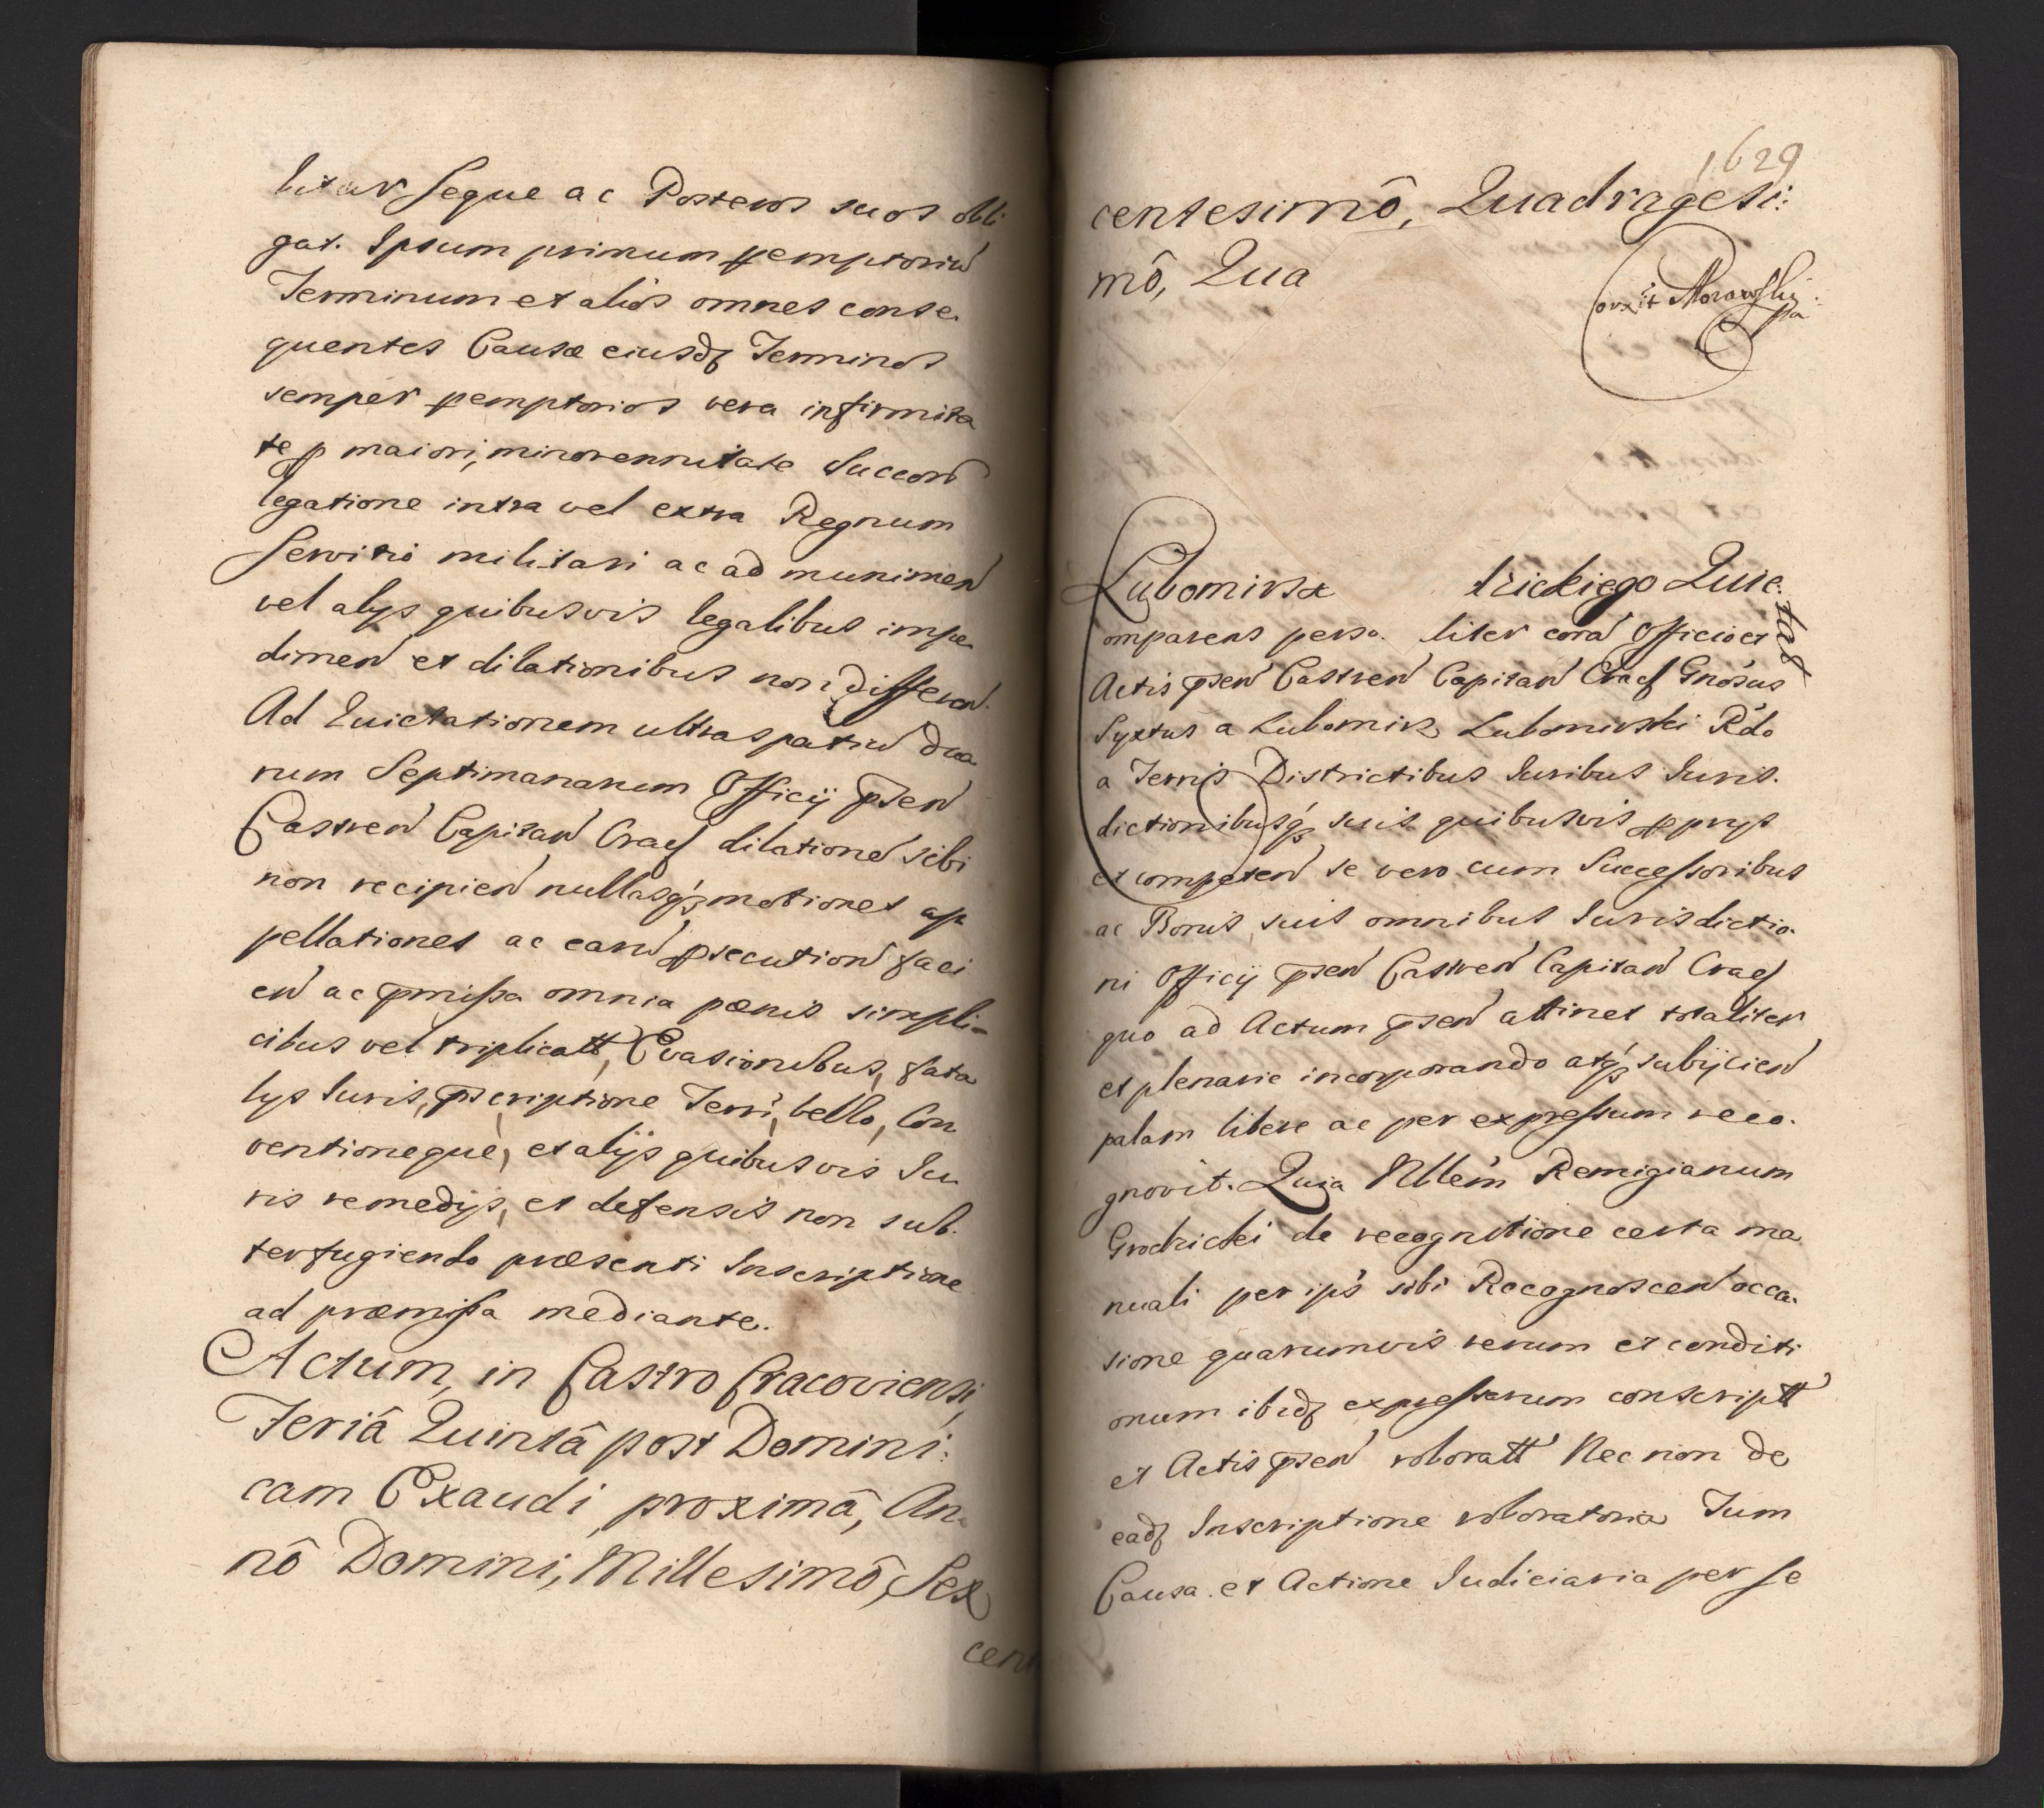 bitur seque ac Posteros suos obli
gat. Ipsum primum pemptoriu
Terminum et alios omnes conse.
quentes Causæ eiusdq Terminos
semper pemptorios vera infirmita
te p maiori, minorennitate Succon
legatione intra vel extra Regnum
Servitio militari ac ad munimen
vel alys quibusvis legalibus impe
dimen et dilationibus non differen.
Ad Euictationem ultra spatiu dua
rum Septimanarum Officij psen
Castren Capitan Crac dilatione sibi
non recipien nullasq3 motiones ap
pellationes ac earu psecution faci
en ac pmissa omnia pœnis simpli-
cibus vel triplicatt, Evasionibus, fata
lys Iuris, pscriptione Terri, bello, Con
ventioneque, et alijs quibusvis Iu
ris remedijs, et defensis non sub.
terfugiendo præsenti Inscriptione
ad præmissa mediante.
Actum, in Castro Cracoviensi,
Feriâ Quintâ post Domini:
cam Exaudi, proximâ, An.
nô Domini, Millesimô, Sex
cent
1629
centesimô, Quadragesi:
mô, Qua
Corxit Morawski
Lubomirsk trickiego Quie:
tat
omparens perso. liter cora Officio et
Actis psen Castren Capitan Crac Gnosus
Syxtus a Lubomirz Lubomirski Rdo
a Terris Districtibus Iuribus Iuris.
dictionibusq3 suis quibusvis pprys
et competen se vero cum Successoribus
ac Bonis suis omnibus Iurisdictio.
ni Officij psen Castren Capitan Crac
quo ad Actum psen attinet totaliter
et plenarie incorporando atq3 subijcien
palam libere ac per expressum reco.
gnovit. Quia Nblem Remigianum
Grodzicki de recognitione certa ma
nuali per ips sibi Recognoscen occa.
sione quarumvis rerum et conditi
onum ibidq expressarum conscriptt
et Actis psen roboratt Nec non de
eadq Inscriptione roboratoria Tum
Causa et Actione Iudiciaria per se